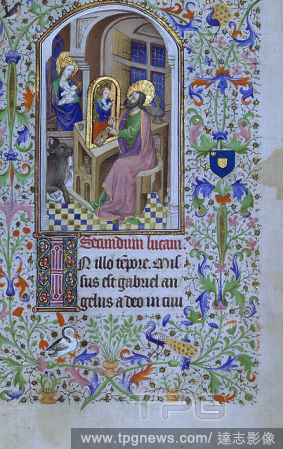 Secundum lucam.
N illo tēpore. Mis
sus est gabriel an
gelus a deo in civi
TPG
www.tpgnews.com/ 達志影像